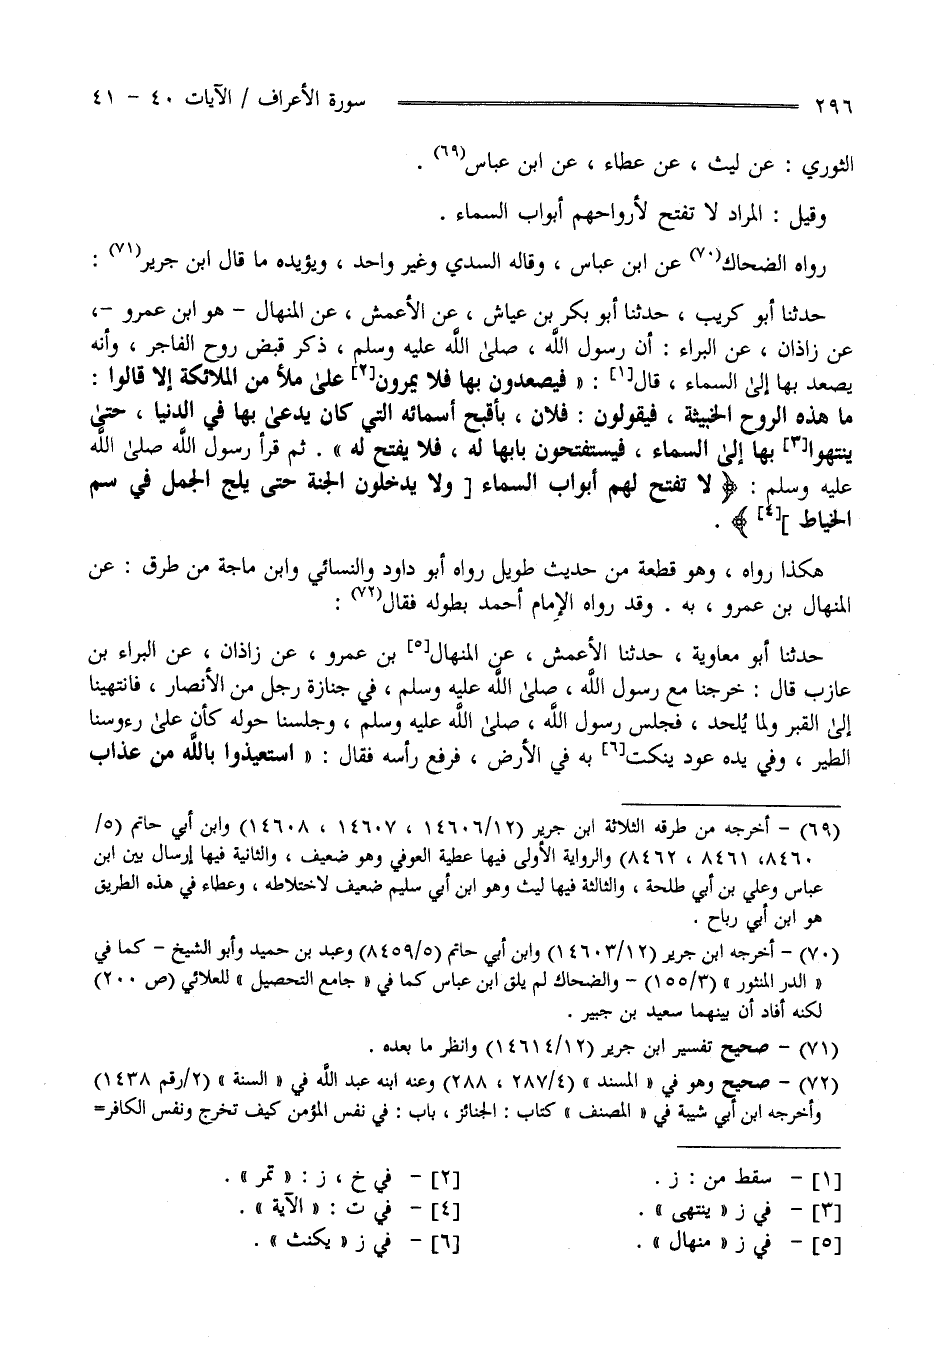 ٢٩٦ سورة الأعراف / الآيات ٤٠ - ٤١
الثوري : عن ليث ، عن عطاء ، عن ابن عباس(٦٩) .
وقيل : المراد لا تفتح لأرواحهم أبواب السماء .
رواه الضحاك(٧٠) عن ابن عباس ، وقاله السدي وغير واحد ، ويؤيده ما قال ابن جرير(٧١) :
حدثنا أبو كريب ، حدثنا أبو بكر بن عياش ، عن الأعمش ، عن المنهال - هو ابن عمرو -،
عن زاذان ، عن البراء : أن رسول اللَّه ، صلىٰ اللَّه عليه وسلم ، ذكر قبض روح الفاجر ، وأنه
يصعد بها إلىٰ السماء ، قال[١] : « فيصعدون بها فلا يمرون[٢] علىٰ ملأ من الملائكة إلا قالوا :
ما هذه الروح الخبيثة ، فيقولون : فلان ، بأقبح أسمائه التي كان يدعىٰ بها في الدنيا ، حتىٰ
ينتهوا[٣] بها إلىٰ السماء ، فيستفتحون بابها له ، فلا يفتح له » . ثم قرأ رسول اللَّه صلىٰ اللَّه
عليه وسلم : ﴿ لا تفتح لهم أبواب السماء [ ولا يدخلون الجنة حتى يلج الجمل في سم
الخياط ][٤] ﴾ .
هكذا رواه ، وهو قطعة من حديث طويل رواه أبو داود والنسائي وابن ماجة من طرق : عن
المنهال بن عمرو ، به . وقد رواه الإمام أحمد بطوله فقال(٧٢) :
حدثنا أبو معاوية ، حدثنا الأعمش ، عن المنهال[٥] بن عمرو ، عن زاذان ، عن البراء بن
عازب قال : خرجنا مع رسول اللَّه ، صلىٰ اللَّه عليه وسلم ، في جنازة رجل من الأنصار ، فانتهينا
إلىٰ القبر ولما يُلحد ، فجلس رسول اللَّه ، صلىٰ اللَّه عليه وسلم ، وجلسنا حوله كأن علىٰ رءوسنا
الطير ، وفي يده عود ينكت[٦] به في الأرض ، فرفع رأسه فقال : « استعيذوا باللَّه من عذاب
(٦٩) - أخرجه من طرقه الثلاثة ابن جرير (١٤٦٠٦/١٢ ، ١٤٦٠٧ ، ١٤٦٠٨) وابن أبي حاتم (٥/
٨٤٦٠، ٨٤٦١ ، ٨٤٦٢) والرواية الأولى فيها عطية العوفي وهو ضعيف ، والثانية فيها إرسال بين ابن
عباس وعلي بن أبي طلحة ، والثالثة فيها ليث وهو ابن أبي سليم ضعيف لاختلاطه ، وعطاء في هذه الطريق
هو ابن أبي رباح .
(٧٠) - أخرجه ابن جرير (١٤٦٠٣/١٢) وابن أبي حاتم (٨٤٥٩/٥) وعبد بن حميد وأبو الشيخ - كما في
« الدر المنثور » (١٥٥/٣) - والضحاك لم يلق ابن عباس كما في « جامع التحصيل » للعلائي (ص ٢٠٠)
لكنه أفاد أن بينهما سعيد بن جبير .
(٧١) - صحيح تفسير ابن جرير (١٤٦١٤/١٢) وانظر ما بعده .
(٧٢) - صحيح وهو في « المسند » (٢٨٧/٤ ، ٢٨٨) وعنه ابنه عبد اللَّه في « السنة » (٢/رقم ١٤٣٨)
وأخرجه ابن أبي شيبة في « المصنف » كتاب : الجنائز ، باب : في نفس المؤمن كيف تخرج ونفس الكافر=
[١] - سقط من : ز . [٢] - في خ ، ز : « تمر » .
[٣] - في ز « ينتهى » . [٤] - في ت : « الآية » .
[٥] - في ز « منهال » . [٦] - في ز « يكنث » .